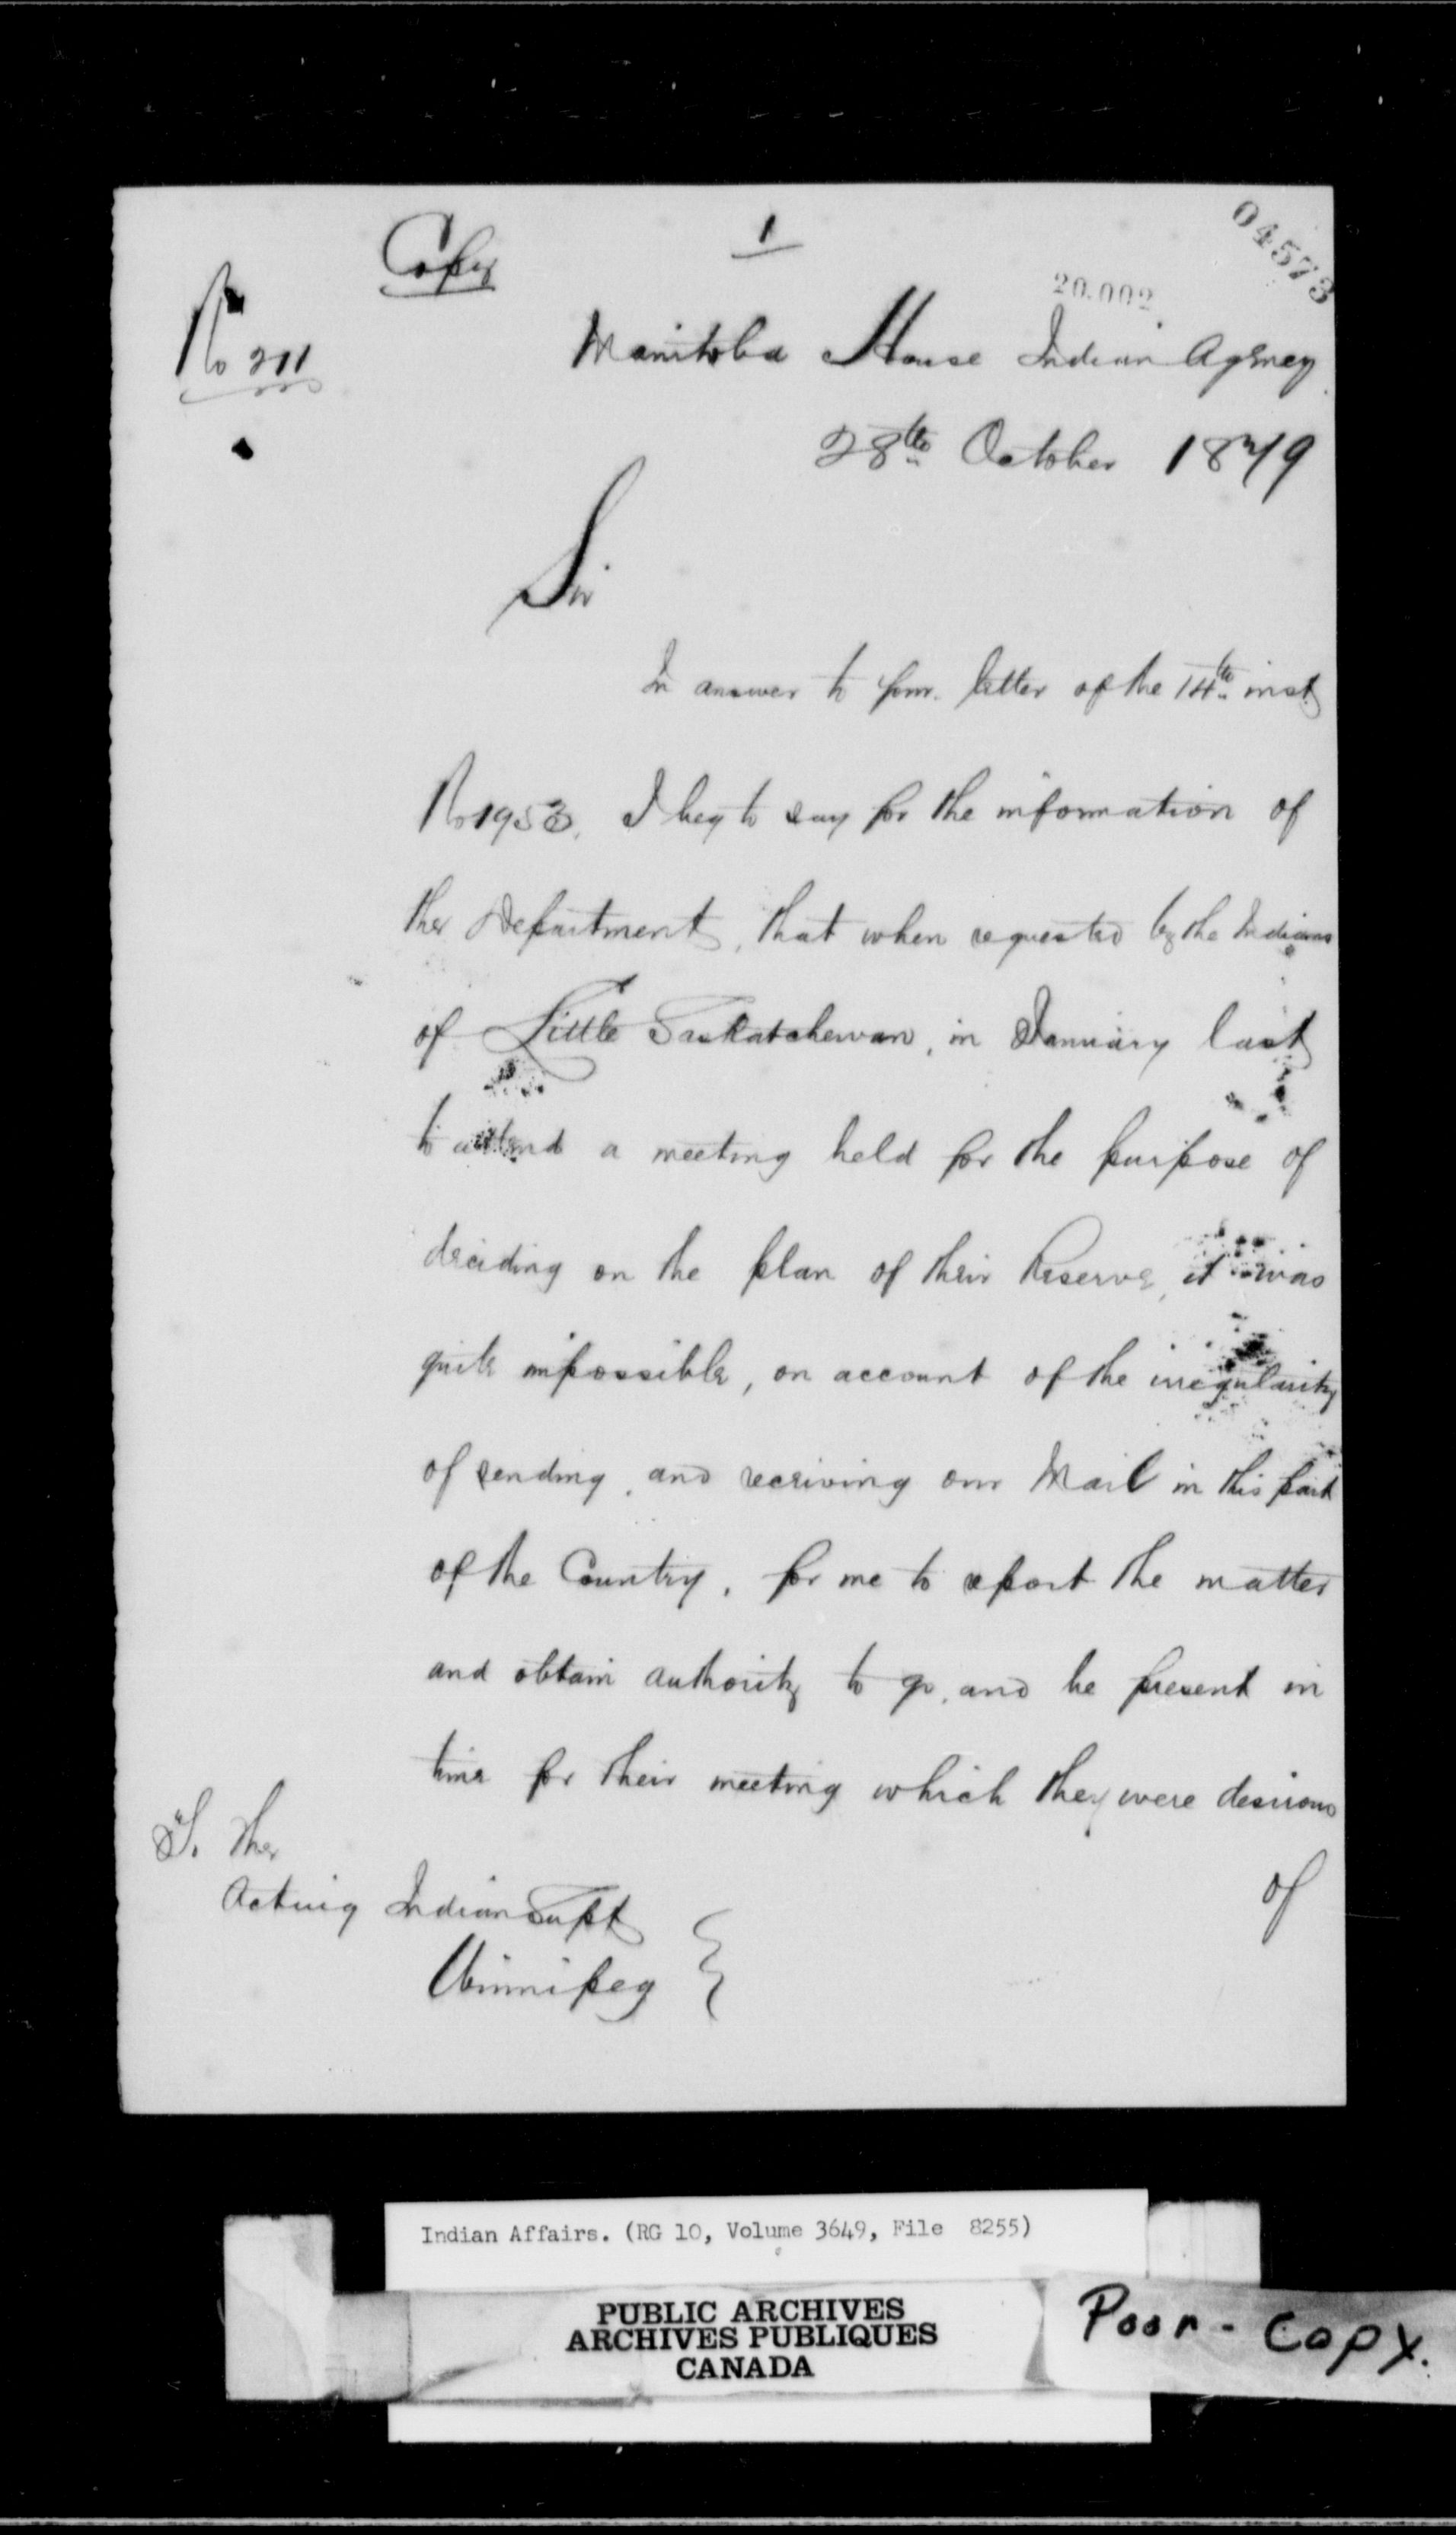 Copy
1
04573
20.002
No 211
Manitoba House Indian Agency
28th October 1879
Sir
In answer to your letter of the 14th inst
No 1953, I beg to say for the information of
the Department, that when requested by the Indians
of Little Saskatchewan, in January last
to attend a meeting held for the purpose of
deciding on the plan of their Reserve, it was
quite impossible, on account of the irregularity
of sending, and receiving our Mail in this part
of the Country, for me to report the matter
and obtain authority to go, and be present in
time for their meeting which they were desirous
of
To the
Acting Indian Supt
Winnipeg
Indian Affairs. (RG 10, Volume 3649, File 8255)
PUBLIC ARCHIVES
ARCHIVES PUBLIQUES
CANADA
Poor-Copy.